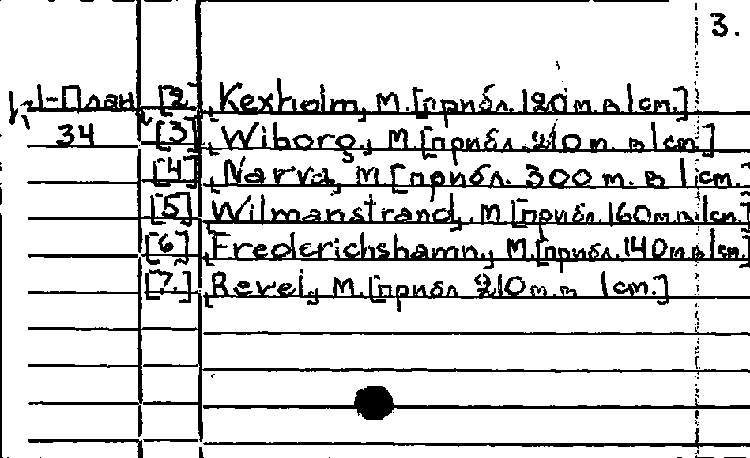 3.
1-План [2] Kexholm, М. [прибл. 120 m. в 1 cm.]
34 [3] Wiborg, М. [прибл. 210 m. в 1 cm.]
[4] Narva, М [прибл. 300 m. в 1 cm.]
[5] Wilmanstrand, М [прибл. 160 m. в 1 cm.]
[6] Frederichshamn, М. [прибл. 140 m в 1 cm.]
[7.] Revel, М. [прибл 210 m. в 1 cm.]